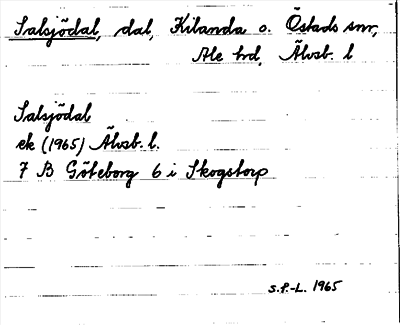 Salsjödal, dal, Kilanda o. Östads snr,
Ale hrd, Älvsb. l
Salsjödal
ek (1965) Älvsb. l.
7 B Göteborg 6 i Skogstorp
S.F.-L. 1965